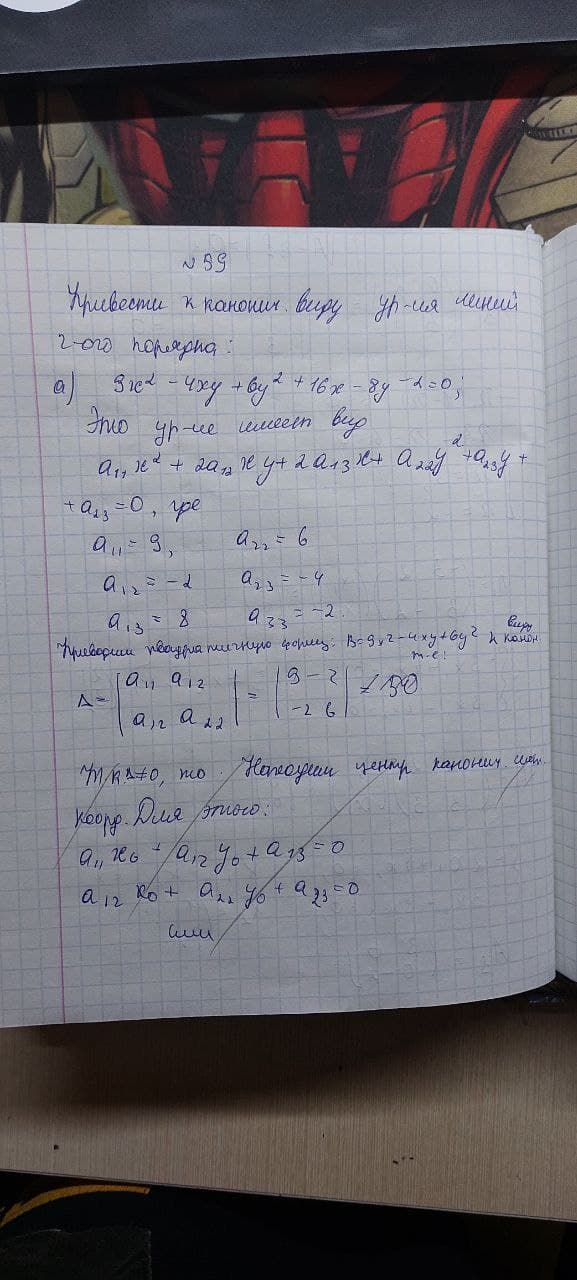 № 99
Привести к канонич. виду ур-ия линий
2-ого порядка:
а) 9x² - 4xy + 6y² + 16x - 8y - 2 = 0;
Это ур-ие имеет вид
a₁₁x² + 2a₁₂xy + 2a₁₃x + a₂₂y² + a₂₃y +
+ a₂₃ = 0, где
a₁₁ = 9, a₂₂ = 6
a₁₂ = -2 a₂₃ = -4
a₁₃ = 8 a₃₃ = -2.
Приводим квадратичную форму: B = 9x² - 4xy + 6y² к канон. виду
т-е:
Δ = |a₁₁ a₁₂| = |9 -2| ≠ 50
|a₁₂ a₂₂| |-2 6|
Т.к Δ≠0, то Находим центр канонич. сист.
коорд. Для этого:
a₁₁x₀ + a₁₂y₀ + a₁₃ = 0
a₁₂x₀ + a₂₂y₀ + a₂₃ = 0
или